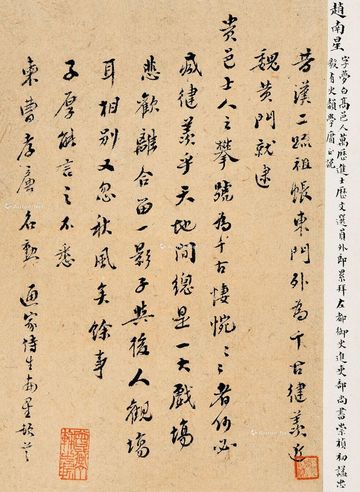 趙南星
字夢白高邑人萬曆進士歷文選員外郎累拜左都御史進吏部尚書崇禎初諡忠
毅有史韻學庸正說
昔漢二疏祖帳東門外為千古健羨近
魏黃門就逮
貴邑士人之攀號為千古悽惋々者何必
減健羨乎天地間總是一大戲場
悲歡離合留一影子與後人觀場
耳相別又忽秋風矣餘事
子厚能言之不悉
曹孝廉名勲 通家侍生南星